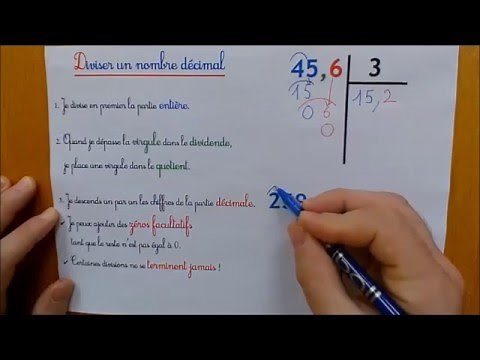 Diviser un nombre décimal
1. Je divise en premier la partie entière.
2. Quand je dépasse la virgule dans le dividende,
je place une virgule dans le quotient.
3. Je descends un par un les chiffres de la partie décimale.
✓ Je peux ajouter des zéros facultatifs
tant que le reste n'est pas égal à 0.
✓ Certaines divisions ne se terminent jamais !
45,6 3
15 15,2
0 6
0